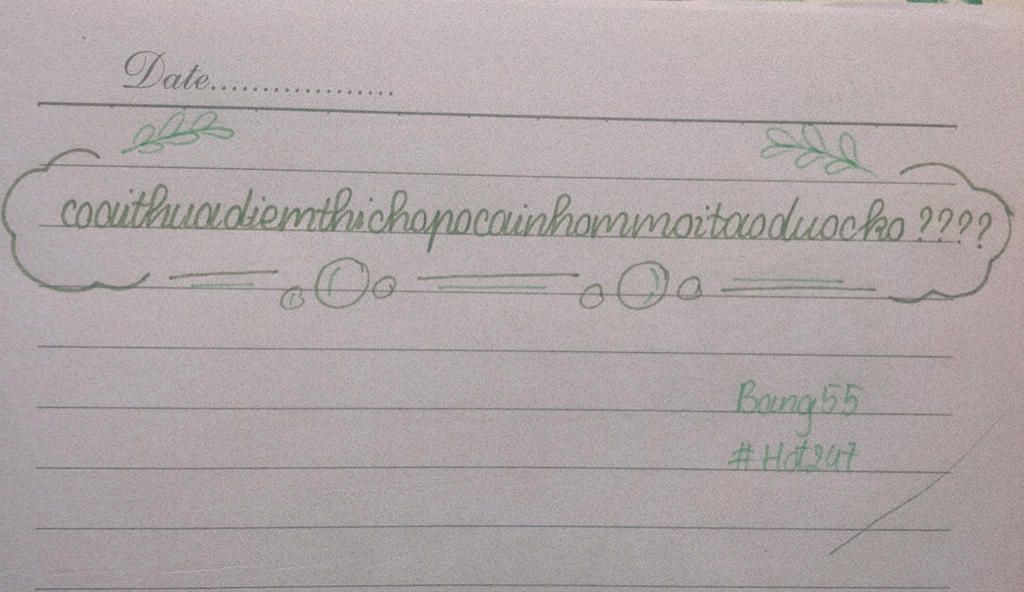 Date..................
coaithuadiemthichopocainhommoitaoduocko ????
Bang55
#Hot247